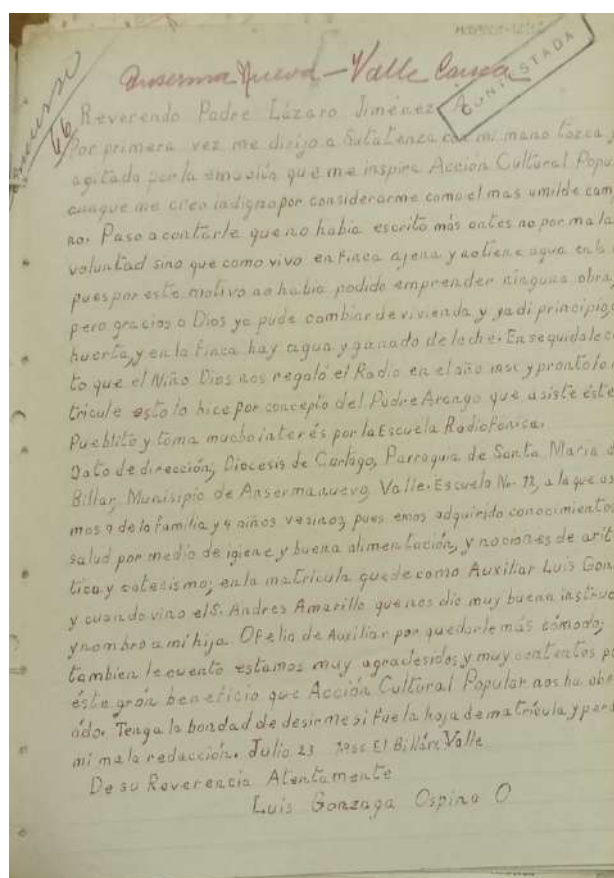 Anserma Nueva - Valle Cauca
CONTESTADA
66
Reverendo Padre Lázaro Jiménez A.
Por primera vez me dirijo a Sutatenza con mi mano tosca y
agitado por la emosión que me inspira Acción Cultural Popu
aunque me creo indigno por considerarme como el mas umilde cam
no. Paso a contarle que no habia escrito más antes no por mala
voluntad sino que como vivo en finca ajena y no tiene agua en la
pues por este motivo no habia podido emprender ninguna obra,
pero gracias a Dios ya pude cambiar de vivienda y ya di principio
huerta, y en la finca hay agua y ganado de leche. En seguida le c
to que el Niño Dios nos regaló el Radio en el año y pronto lo
tricule esto lo hice por concepto del Padre Arango que asiste éste
Pueblito y toma mucho interés por la Escuela Radiofónica.
Dato de dirección, Diocesis de Cartago, Parroquia de Santa Maria d
Billar, Munisipio de Ansermanuevo, Valle. Escuela No. 12, a la que as
mos 9 de la familia y 4 niños vesinos, pues emos adquirido conocimientos
salud por medio de igiene y buena alimentación, y nociones de arit
tica y catesismo; en la matrícula quede como Auxiliar Luis Gon
y cuando vino el S. Andres Amarillo que nos dio muy buena instruc
y nombro a mi hija Ofelia de Auxiliar por quedarle más cómodo;
tambien le cuento estamos muy agradesidos y muy contentos po
éste grán beneficio que Acción Cultural Popular nos ha obe
ádo. Tenga la bondad de desirme si fue la hoja de matrícula, y per
mi mala redacción. Julio 23 El Billár, Valle
De su Reverencia Atentamente
Luis Gonzaga Ospina O